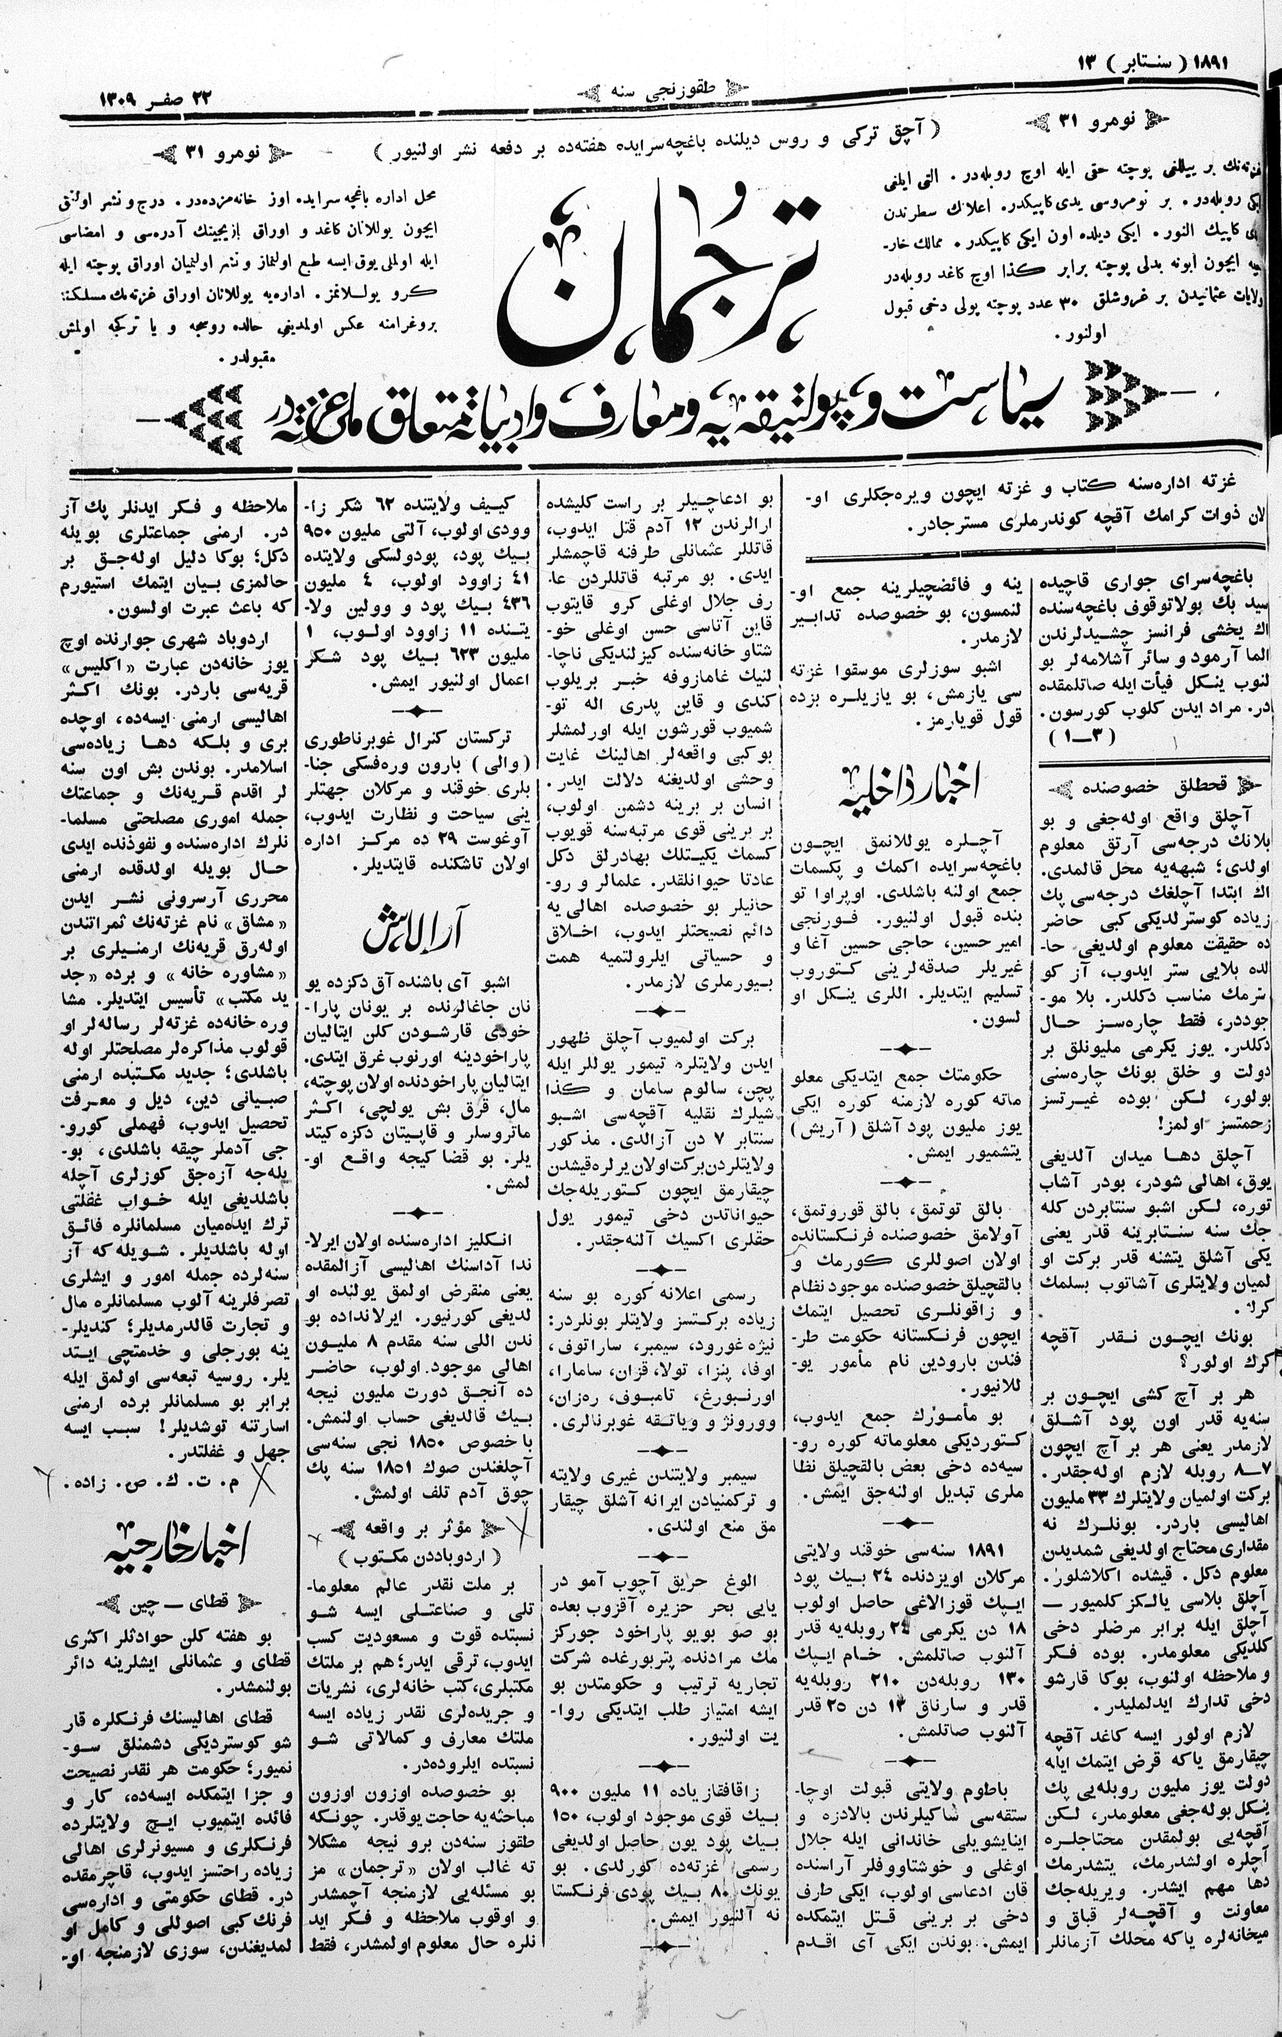 ١٨٩١ ( سنتابر ) ١٣
طقوزنجی سنه
٢٢ صفر ١٣٠٩
نومرو ٣١
( آچق ترکی و روس دیلنده باغچه‌سرایده هفته‌ده بر دفعه نشر اولنیور )
نومرو ٣١
غزته‌نك بر ییللغی پوچته حقی ایله اوچ روبله‌در . التی ایلغی
ایکی روبله‌در . بر نومروسی یدی کاپیکدر . اعلانك سطرندن
کاپیك النور . ایکی دیلده اون ایکی کاپیکدر . ممالك خار-
جیه ایچون ابونه بدلی پوچته برابر کذا اوچ کاغد روبله‌در
ولایات عثمانیدن بر غروشلق ٣٠ عدد پوچته پولی دخی قبول
اولنور .
ترجمان
محل اداره باغچه سرایده . اوز خانه‌مزده‌در . درج و نشر اولنق
ایچون یوللانان کاغد و اوراق یازیجینك آدره‌سی و امضاسی
ایله اولملی یوق ایسه طبع اولنماز و نشر اولنمیان اوراق پوچته ایله
کرو یوللانمز . اداره‌یه یوللانان اوراق غزته‌مك مسلکنه
پروغرامنه عکس اولمدیغی حالده روسجه و یا ترکجه اولمش
مقبولدر .
سیاست و پولتیقه‌یه و معارف و ادبیاته متعلق ملی غزته‌در
غزته اداره‌سنه کتاب و غزته ایچون ویره‌جکلری او-
لان ذوات کرامك آقچه کوندرملری مسترجادر.
باغچه‌سرای جواری قاچیده
سید بك بولاتوقوف باغچه‌سنده
اك یخشی فرانسز چشیدلرندن
الما آرمود و سائر آشلامه‌لر بو
لنوب ینکل فیأت ایله صاتلمقده
در. مراد ایدن کلوب کورسون.
( ٣—١ )
قحطلق خصوصنده
آچلق واقع اوله‌جغی و بو
بلانك درجه‌سی آرتق معلوم
اولدی؛ شبهه‌یه محل قالمدی.
اك ابتدا آچلغك درجه‌سی پك
زیاده کوسترلدیکی کبی حاضر
ده حقیقت معلوم اولدیغی حا-
لده بلایی ستر ایدوب، آز کو
سترمك مناسب دکلدر. بلا مو-
جوددر، فقط چاره‌سز حال
دکلدر. یوز یکرمی ملیونلق بر
دولت و خلق بونك چاره‌سنی
بولور، لکن بوده غیرتسز
زحمتسز اولمز!
آچلق دها میدان آلدیغی
یوق، اهالی شودر، بودر آشاب
توره، لکن اشبو سنتابردن کله
جك سنه سنتابرینه قدر یعنی
یکی آشلق یتشنه قدر برکت او
لمیان ولایتلری آشاتوب بسلمك
کرك .
بونك ایچون نقدر آقچه
کرك اولور؟
هر بر آچ کشی ایچون بر
سنه‌یه قدر اون پود آشلق
لازمدر یعنی هر بر آچ ایچون
٧—٨ روبله لازم اوله‌جقدر.
برکت اولمیان ولایتلرك ٣٣ ملیون
اهالیسی باردر. بونلرك نه
مقداری محتاج اولدیغی شمدیدن
معلوم دکل. قیشده اکلاشلور.
آچلق بلاسی یالکز کلمیور —
آچلق ایله برابر مرضلر دخی
کلدیکی معلومدر. بوده فکر
و ملاحظه اولنوب، بوکا قارشو
دخی تدارك ایدلملیدر.
لازم اولور ایسه کاغد آقچه
چیقارمق یاکه قرض ایتمك ایله
دولت یوز ملیون روبله‌یی پك
ینکل بوله‌جغی معلومدر، لکن
آقچه‌یی بولمقدن محتاجلره
آچلره اولشدرمك، یتشدرمك
دها مهم ایشدر. ویریله‌جك
معاونت و آقچه‌لر قباق و
میخانه‌لره یاکه محلك آزمانلر
ینه و فائضچیلرینه جمع او-
لنمسون، بو خصوصده تدابیر
لازمدر.
اشبو سوزلری موسقوا غزته
سی یازمش، بو یازیلره بزده
قول قویارمز.
اخبار داخلیه
آچلره یوللانمق ایچون
باغچه‌سرایده اکمك و پکسمات
جمع اولنه باشلدی. اوپراوا تو
بنده قبول اولنیور. فورنجی
امیر حسین، حاجی حسین آغا و
غیریلر صدقه‌لرینی کتوروب
تسلیم ایتدیلر. اللری ینکل او
لسون.
حکومتك جمع ایتدیکی معلو
ماته کوره لازمنه کوره ایکی
یوز ملیون پود آشلق (آریش)
یتشمیور ایمش.
بالق توتمق، بالق قوروتمق،
آولامق خصوصنده فرنکستانده
اولان اصوللری کورمك و
بالقچیلق خصوصنده موجود نظام
و زاقونلری تحصیل ایتمك
ایچون فرنکستانه حکومت طر-
فندن بارودین نام مأمور یو-
للانیور.
بو مأمورك جمع ایدوب،
کتوردیکی معلوماته کوره رو-
سیه‌ده دخی بعض بالقچیلق نظا
ملری تبدیل اولنه‌جق ایمش.
١٨٩١ سنه‌سی خوقند ولایتی
مرکلان اویزدنده ٢٤ بیك پود
ایپك قوزالاغی حاصل اولوب
١٨ دن یکرمی ٢٤ روبله‌یه قدر
آلنوب صاتلمش. خام ایپك
١٣٠ روبله‌دن ٢١٠ روبله‌یه
قدر و سارناق ١٣ دن ٢٥ قدر
آلنوب صاتلمش.
باطوم ولایتی قبولت اوچا-
ستقه‌سی شاکیلرندن بالادزه و
اینایشویلی خاندانی ایله جلال
اوغلی و خوشتاووفلر آراسنده
قان ادعاسی اولوب، ایکی طرف
دخی بر برینی قتل ایتمکده
ایمش. بوندن ایکی آی اقدم
بو ادعاچیلر بر راست کلیشده
ارالرندن ١٢ آدم قتل ایدوب،
قاتللر عثمانلی طرفنه قاچمشلر
ایدی. بو مرتبه قاتللردن عا-
رف جلال اوغلی کرو قایتوب
قاین آتاسی حسن اوغلی خو-
شتاو خانه‌سنده کیزلندیکی ناچا-
لنیك غامازوفه خبر بریلوب
کندی و قاین پدری اله تو-
شمیوب قورشون ایله اورلمشلر
بوکبی واقعه‌لر اهالینك غایت
وحشی اولدیغنه دلالت ایدر.
انسان بر برینه دشمن اولوب،
بر برینی قوی مرتبه‌سنه قویوب
کسمك یکیتلك بهادرلق دکل
عادتا حیوانلقدر. علمالر و رو-
حانیلر بو خصوصده اهالی‌یه
دائم نصیحتلر ایدوب، اخلاق
و حسیاتی ایلرولتمیه همت
بیورملری لازمدر.
برکت اولمیوب آچلق ظهور
ایدن ولایتلره تیمور یوللر ایله
پچن، سالوم سامان و کذا
شیلرك نقلیه آقچه‌سی اشبو
سنتابر ٧ دن آزالدی. مذکور
ولایتلردن برکت اولان یرلره قیشدن
چیقارمق ایچون کتوریله‌جك
حیواناتدن دخی تیمور یول
حقلری اکسیك آلنه‌جقدر.
رسمی اعلانه کوره بو سنه
زیاده برکتسز ولایتلر بونلردر:
نیژه غورود، سیمبر، ساراتوف،
اوفا، پنزا، تولا، قزان، سامارا،
اورنبورغ، تامبوف، ره‌زان،
وورونژ و ویاتقه غوبرنالری.
سیمبر ولایتندن غیری ولایته
و ترکمنیادن ایرانه آشلق چیقار
مق منع اولندی.
الوغ حریق آچوب آمو در
یایی بحر حزیره آقزوب بعده
بو صو بویو پاراخود جورکز
مك مرادنده پتربورغده شرکت
تجاریه ترتیب و حکومتدن بو
ایشه امتیاز طلب ایتدیکی روا-
یت اولنیور.
زاقافقازیاده ١١ ملیون ٩٠٠
بیك قوی موجود اولوب، ١٥٠
بیك پود یون حاصل اولدیغی
رسمی غزته‌ده کورلدی. بو
یونك ٨٠ بیك پودی فرنکستا
نه آلنیور ایمش.
کیف ولایتنده ٦٢ شکر زا-
وودی اولوب، آلتی ملیون ٩٥٠
بیك پود، پودولسکی ولایتده
٤١ زاوود اولوب، ٤ ملیون
٤٣٦ بیك پود و وولین ولا-
یتنده ١١ زاوود اولوب، ١
ملیون ٦٢٣ بیك پود شکر
اعمال اولنیور ایمش.
ترکستان کنرال غوبرناطوری
(والی) بارون وره‌فسکی جنا-
بلری خوقند و مرکلان جهتلر
ینی سیاحت و نظارت ایدوب،
آوغوست ٢٩ ده مرکز اداره
اولان تاشکنده قایتدیلر.
آرالاش
اشبو آی باشنده آق دکزده یو
نان جاغالرنده بر یونان پارا-
خودی قارشودن کلن ایتالیان
پاراخودینه اورنوب غرق ایتدی.
ایتالیان پاراخودنده اولان پوچته،
مال، قرق بش یولچی، اکثر
ماتروسلر و قاپیتان دکزه کیتد
یلر. بو قضا کیجه واقع او-
لمش.
انکلیز اداره‌سنده اولان ایرلا-
ندا آداسنك اهالیسی آزالمقده
یعنی منقرض اولمق یولنده او
لدیغی کورنیور. ایرلانداده بو
ندن اللی سنه مقدم ٨ ملیون
اهالی موجود اولوب، حاضر
ده آنجق دورت ملیون نیجه
بیك قالدیغی حساب اولنمش.
باخصوص ١٨٥٠ نجی سنه‌سی
آچلغندن صوك ١٨٥١ سنه پك
چوق آدم تلف اولمش.
مؤثر بر واقعه
( اردوباددن مکتوب )
بر ملت نقدر عالم معلوما-
تلی و صناعتلی ایسه شو
نسبتده قوت و مسعودیت کسب
ایدوب، ترقی ایدر؛ هم بر ملتك
مکتبلری، کتب خانه‌لری، نشریات
و جریده‌لری نقدر زیاده ایسه
ملتك معارف و کمالاتی شو
نسبتده ایلروده‌در.
بو خصوصده اوزون اوزون
مباحثه‌یه حاجت یوقدر. چونکه
طقوز سنه‌دن برو نیجه مشکلا
ته غالب اولان «ترجمان» مز
بو مسئله‌یی لازمنجه آچمشدر
و اوقوب ملاحظه و فکر اید
نلره حال معلوم اولمشدر، فقط
ملاحظه و فکر ایدنلر پك آز
در. ارمنی جماعتلری بویله
دکل؛ بوکا دلیل اوله‌جق بر
حالمزی بیان ایتمك استیورم
که باعث عبرت اولسون.
اردوباد شهری جوارنده اوچ
یوز خانه‌دن عبارت «اکلیس»
قریه‌سی باردر. بونك اکثر
اهالیسی ارمنی ایسه‌ده، اوچده
بری و بلکه دها زیاده‌سی
اسلامدر. بوندن بش اون سنه
لر اقدم قریه‌نك و جماعتك
جمله اموری مصلحتی مسلما-
نلرك اداره‌سنده و نفوذنده ایدی
حال بویله اولدقده ارمنی
محرری آرسرونی نشر ایدن
«مشاق» نام غزته‌نك ثمراتندن
اوله‌رق قریه‌نك ارمنیلری بر
«مشاوره خانه» و برده «جد
ید مکتب» تأسیس ایتدیلر. مشا
وره خانه‌ده غزته‌لر رساله‌لر او
قولوب مذاکره‌لر مصلحتلر اوله
باشلدی؛ جدید مکتبده ارمنی
صبیانی دین، دیل و معرفت
تحصیل ایدوب، فهملی کورو-
جی آدملر چیقه باشلدی، بو-
یله‌جه آزه‌جق کوزلری آچله
باشلدیغی ایله خواب غفلتی
ترك ایده‌میان مسلمانلره فائق
اوله باشلدیلر. شویله‌که آز
سنه‌لرده جمله امور و ایشلری
تصرفلرینه آلوب مسلمانلره مال
و تجارت قالدرمدیلر؛ کندیلر-
ینه بورجلی و خدمتچی ایتد
یلر. روسیه تبعه‌سی اولمق ایله
برابر بو مسلمانلر برده ارمنی
اسارتنه توشدیلر! سبب ایسه
جهل و غفلتدر.
م. ت. ك. ص. زاده.
اخبار خارجیه
قطای — چین
بو هفته کلن حوادثلر اکثری
قطای و عثمانلی ایشلرینه دائر
بولنمشدر.
قطای اهالیسنك فرنکلره قار
شو کوستردیکی دشمنلق سو-
نمیور؛ حکومت هر نقدر نصیحت
و جزا ایتمکده ایسه‌ده، کار و
فائده ایتمیوب ایچ ولایتلرده
فرنکلری و مسیونرلری اهالی
زیاده راحتسز ایدوب، قاچرمقده
در. قطای حکومتی و اداره‌سی
فرنك کبی اصوللی و کامل او
لمدیغندن، سوزی لازمنجه او-